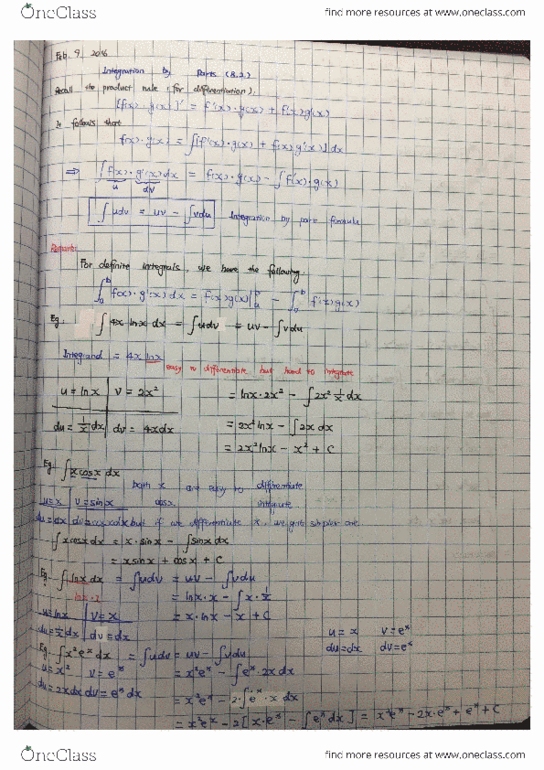 OneClass
find more resources at www.oneclass.com
Feb. 9, 2016
Integration by Parts (8.2)
Recall the product rule (for differentiation),
[f(x)·g(x)]' = f'(x)·g(x) + f(x)g'(x)
It follows that
f(x)·g(x) = ∫[f'(x)·g(x) + f(x)g'(x)]dx
⇒ ∫f(x)·g'(x)dx = f(x)·g(x) - ∫f'(x)·g(x)
u dv
∫udv = uv - ∫vdu Integration by parts formula
Remark:
For definite integrals, we have the following,
∫ₐᵇ f(x)·g'(x)dx = f(x)g(x)|ₐᵇ - ∫ₐᵇ f'(x)g(x)
Eg. ∫4x lnx dx = ∫udv = uv - ∫vdu
Integrand = 4x lnx
easy to differentiate but hard to integrate
u = lnx v = 2x² = lnx·2x² - ∫2x² 1/x dx
du = 1/x dx dv = 4xdx = 2x²lnx - ∫2x dx
= 2x²lnx - x² + C
Eg. ∫xcosx dx
both x are easy to differentiate
u=x v=sinx cosx integrate
du=dx dv=cosxdx but if we differentiate x, we get simpler one
∫xcosxdx = x·sinx - ∫sinx dx
= xsinx + cosx + C
Eg. ∫lnx dx = ∫udv = uv - ∫vdu
= lnx·x - ∫x·1/x
u=lnx v=x = x·lnx - x + C
du=1/x dx dv=dx
u=x v=eˣ
du=dx dv=eˣ
Eg. ∫x²eˣdx = ∫udv = uv - ∫vdu
u=x² v=eˣ = x²eˣ - ∫eˣ·2xdx
du=2xdx dv=eˣdx = x²eˣ - 2·∫eˣ·x dx
= x²eˣ - 2[x·eˣ - ∫eˣdx] = x²eˣ - 2x·eˣ + eˣ + C
OneClass
find more resources at www.oneclass.com